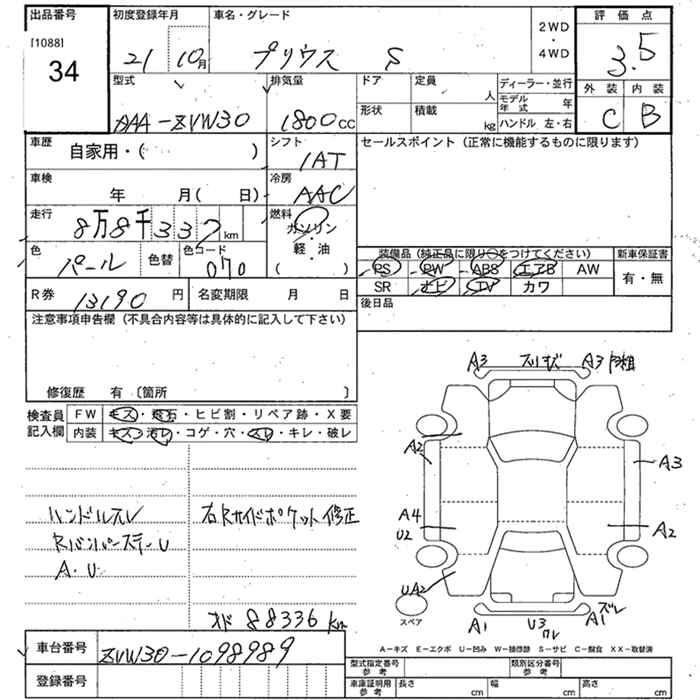 出品番号 初度登録年月 車名・グレード 2WD・4WD 評価点
[1088]
34 21 10月 プリウス S 3.5
型式 排気量 ドア 定員 人 ディーラー・並行 外装 内装
形状 積載 kg モデル年式 年
DAA-ZVW30 1800cc ハンドル 左・右 C B
車歴 自家用・( ) シフト 1AT セールスポイント (正常に機能するものに限ります)
車検 年 月( 日) 冷房 AAC
走行 8万8千337km 燃料 ガソリン・軽・油 ( )
色 パール 色替 色コード 070
装備品 (純正品に限り○をつけてください) 新車保証書
PS PW ABS エアB AW 有・無
SR ナビ TV カワ
R券 13190円 名変期限 月 日 後日品
注意事項申告欄 (不具合内容等は具体的に記入して下さい)
修復歴 有 〔箇所 〕
検査員記入欄 FW キズ・飛石・ヒビ割・リペア跡・X要
内装 キズ・汚レ・コゲ・穴・スレ・キレ・破レ
A3 スリキズ A3
A2 A3
A4 U2 A2
UA2
スペア A1 U3 ワレ A1 ズレ
ハンドルスレ 右Rサイドポケット修正
RバンパーステーU
A.U
オド 88336km
A-キズ E-エクボ U-凹み W-補修跡 S-サビ C-腐食 XX-取替済
車台番号 ZVW30-1098989
登録番号
型式指定番号 参考 類別区分番号 参考
車庫証明用 参考 長さ cm 幅 cm 高さ cm